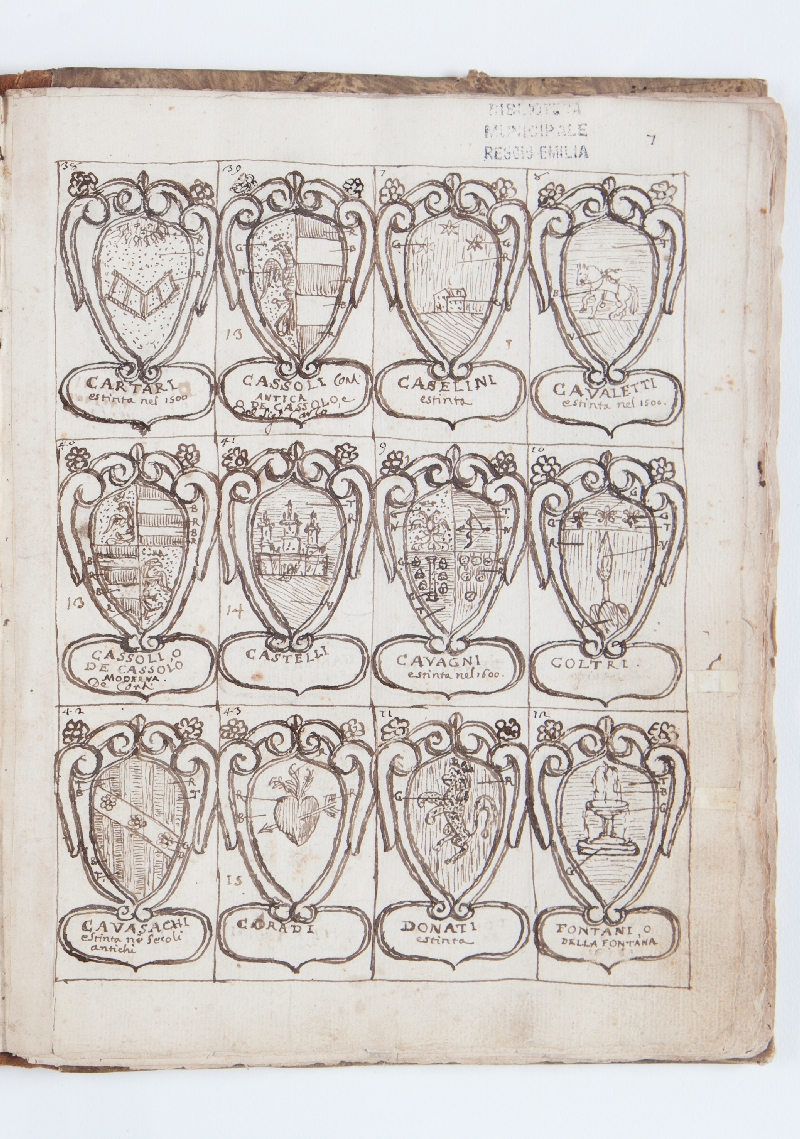 BIBLIOTECA
MUNICIPALE
REGGIO EMILIA
7
38
CARTARI
estinta nel 1500
39
13
CASSOLI Conti
ANTICA
O DE CASSOLO, e
7
CASELINI
estinta
8
CAVALETTI
estinta nel 1500.
40
13
CASSOLI, O
DE CASSOLO
MODERNA.
De Conti
41
14
CASTELLI
9
CAVAGNI
estinta nel 1600.
10
COLTRI.
42
CAVASACHI
estinta ne secoli
antichi
43
15
CORADI
11
DONATI
estinta
12
FONTANI, O
DELLA FONTANA